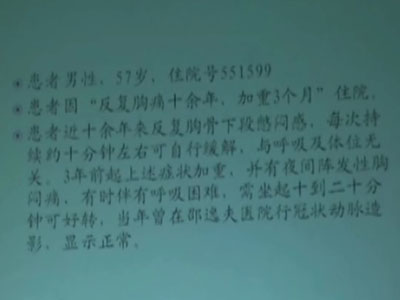 患者男性，57岁，住院号551599
患者因“反复胸痛十余年，加重3个月”住院。
患者近十余年来反复胸骨下段憋闷感，每次持
续约十分钟左右可自行缓解，与呼吸及体位无
关。3年前起上述症状加重，并有夜间阵发性胸
闷痛，有时伴有呼吸困难，需坐起十到二十分
钟可好转，当年曾在邵逸夫医院行冠状动脉造
影，显示正常。